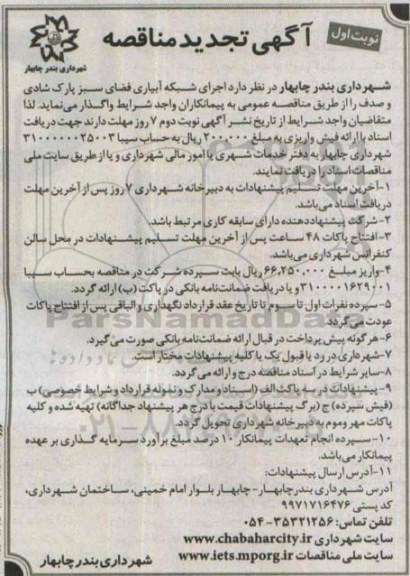 نوبت اول
آگهی تجدید مناقصه
شهرداری بندر چابهار
شهرداری بندر چابهار در نظر دارد اجرای شبکه آبیاری فضای سبز پارک شادی
و صدف را از طریق مناقصه عمومی به پیمانکاران واجد شرایط واگذار می‌نماید. لذا
متقاضیان واجد شرایط از تاریخ نشر آگهی نوبت دوم ۷ روز مهلت دارند جهت دریافت
اسناد با ارائه فیش واریزی به مبلغ ۲۰۰۰۰۰۰ ریال به حساب سیبا
شهرداری چابهار به دفتر خدمات شهری یا امور مالی شهرداری و یا از طریق سایت ملی
مناقصات اسناد را دریافت نمایند.
۱-آخرین مهلت تسلیم پیشنهادات به دبیرخانه شهرداری ۷ روز پس از آخرین مهلت
دریافت اسناد می‌باشد.
۲-شرکت پیشنهاددهنده دارای سابقه کاری مرتبط باشد.
۳-افتتاح پاکات ۴۸ ساعت پس از آخرین مهلت تسلیم پیشنهادات در محل سالن
کنفرانس شهرداری می‌باشد.
۴-واریز مبلغ ۶۶,۲۵۰,۰۰۰ ریال بابت سپرده شرکت در مناقصه بحساب سیبا
و یا دریافت ضمانت‌نامه بانکی در پاکت (ب) ارائه گردد.
۵-سپرده نفرات اول تا سوم تا تاریخ عقد قرارداد نگهداری و الباقی پس از افتتاح پاکات
عودت می‌گردد.
۶-هرگونه پیش پرداخت در قبال ارائه ضمانت‌نامه بانکی صورت می‌گیرد.
۷-شهرداری در رد یا قبول یک یا کلیه پیشنهادات مختار است.
۸-سایر شرایط در اسناد مناقصه درج و ارائه می‌گردد.
۹-پیشنهادات در سه پاکت الف (اسناد و مدارک و نمونه قرارداد و شرایط خصوصی) ب
(فیش سپرده) ج (برگ پیشنهادات قیمت با درج هر پیشنهاد جداگانه) تهیه شده و کلیه
پاکات مهر و موم به دبیرخانه شهرداری تحویل گردد.
۱۰-سپرده انجام تعهدات پیمانکار ۱۰ درصد مبلغ برآورد سرمایه گذاری بر عهده
پیمانکار می‌باشد.
۱۱-آدرس ارسال پیشنهادات:
آدرس شهرداری بندر چابهار- چابهار بلوار امام خمینی، ساختمان شهرداری،
کد پستی ۹۹۷۱۷۱۶۴۷۶
تلفن تماس: ۳۵۳۲۱۲۵۶-۰۵۴
سایت شهرداری www.chabaharcity.ir
سایت ملی مناقصات www.iets.mporg.ir
شهرداری بندر چابهار
ParsNamadData